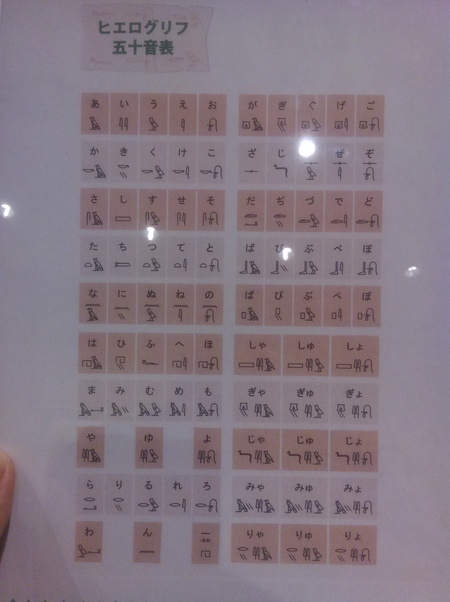 ヒエログリフ
五十音表
あ い う え お
か き く け こ
さ し す せ そ
た ち つ て と
な に ぬ ね の
は ひ ふ へ ほ
ま み む め も
や ゆ よ
ら り る れ ろ
わ ん ー
が ぎ ぐ げ ご
ざ じ ぜ ぞ
だ ぢ づ で ど
ば び ぶ べ ぼ
ぱ ぴ ぷ ぺ ぽ
しゃ しゅ しょ
ぎゃ ぎゅ ぎょ
じゃ じゅ じょ
みゃ みゅ みょ
りゃ りゅ りょ